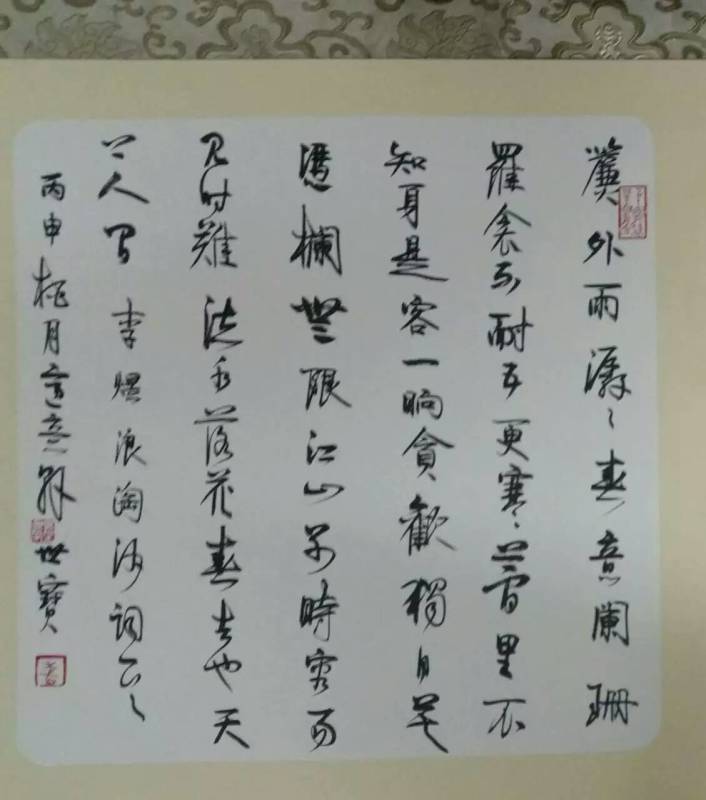 簾外雨潺々春意闌珊
羅衾不耐五更寒夢里不
知身是客一晌貪歡獨自莫
憑欄無限江山别時容易
见时難流水落花春去也天
上人间李煜浪淘沙詞
丙申桃月意轩世寶